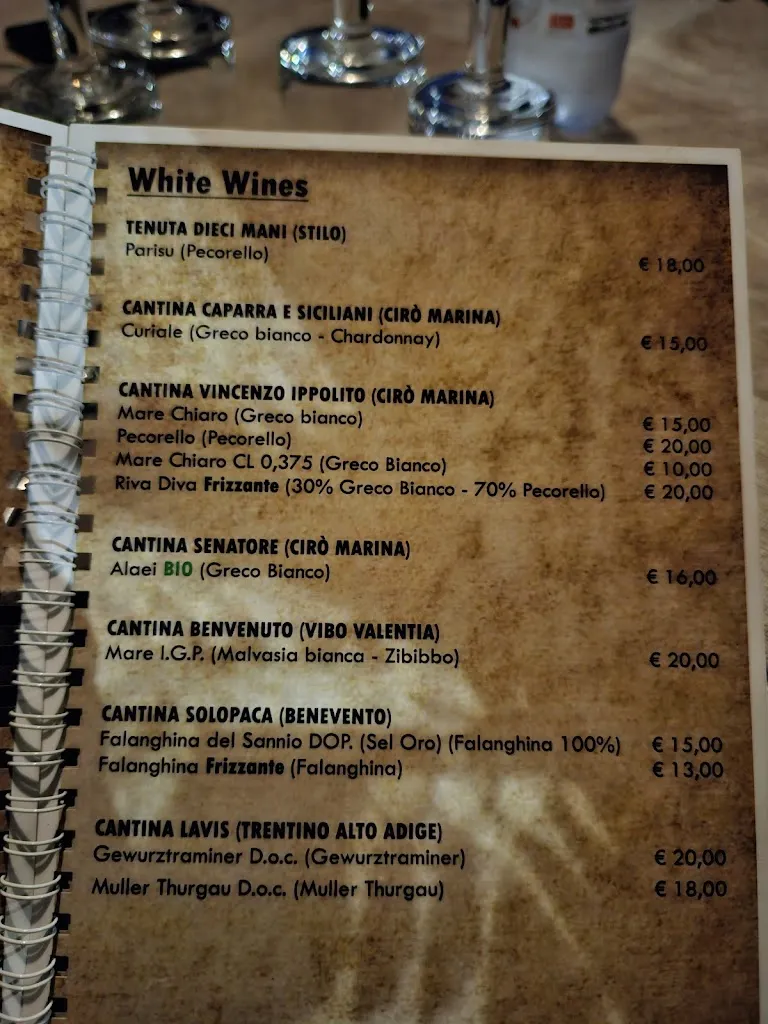 White Wines
TENUTA DIECI MANI (STILO)
Parisu (Pecorello) € 18,00
CANTINA CAPARRA E SICILIANI (CIRÒ MARINA)
Curiale (Greco bianco - Chardonnay) € 15,00
CANTINA VINCENZO IPPOLITO (CIRÒ MARINA)
Mare Chiaro (Greco bianco) € 15,00
Pecorello (Pecorello) € 20,00
Mare Chiaro CL 0,375 (Greco Bianco) € 10,00
Riva Diva Frizzante (30% Greco Bianco - 70% Pecorello) € 20,00
CANTINA SENATORE (CIRÒ MARINA)
Alaei BIO (Greco Bianco) € 16,00
CANTINA BENVENUTO (VIBO VALENTIA)
Mare I.G.P. (Malvasia bianca - Zibibbo) € 20,00
CANTINA SOLOPACA (BENEVENTO)
Falanghina del Sannio DOP. (Sel Oro) (Falanghina 100%) € 15,00
Falanghina Frizzante (Falanghina) € 13,00
CANTINA LAVIS (TRENTINO ALTO ADIGE)
Gewurztraminer D.o.c. (Gewurztraminer) € 20,00
Muller Thurgau D.o.c. (Muller Thurgau) € 18,00